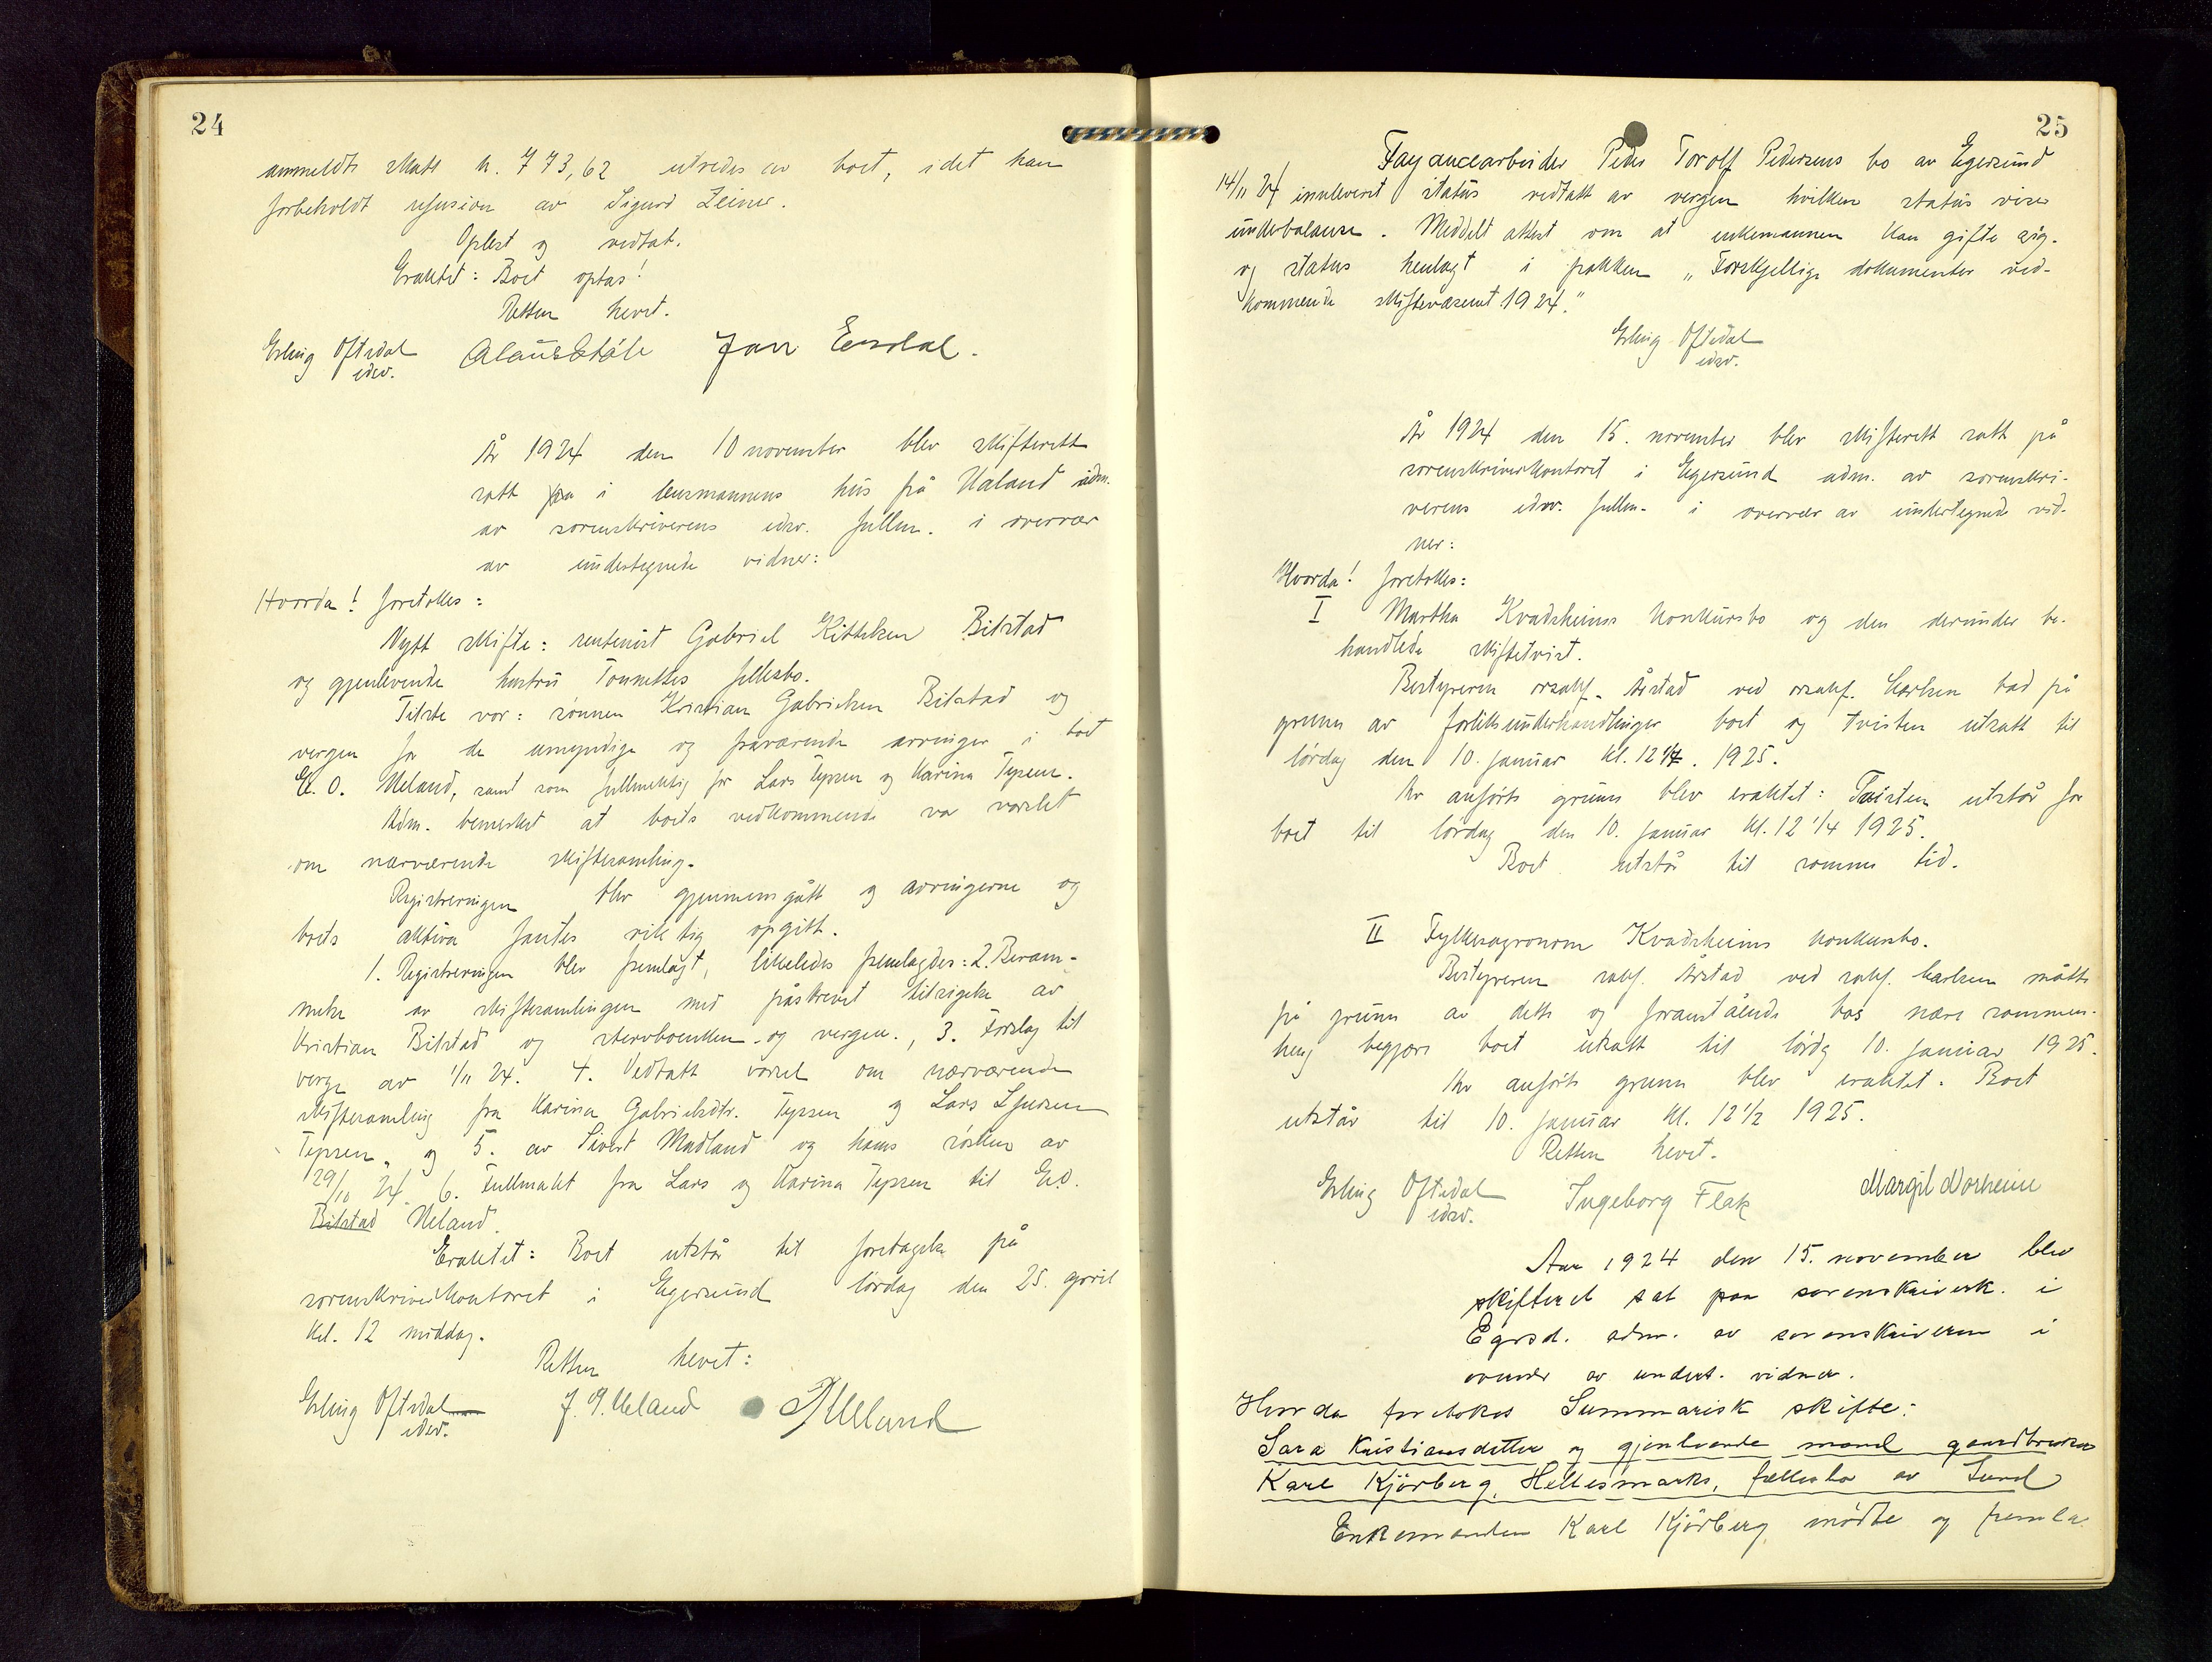 24
anmeldte skatt kr. 773,62 utredes av boet, idet han
forbeholdt refusion av Sigurd Zeiner.
Oplest og vedtat.
Eraktet: Boet optas!
Retten hevet.
Erling Oftedal Jan Eersdal.
edsv.
År 1924 den 10 november blev skifterett
satt i lensmannens hus på Ualand adm.
av sorenskriverens edsv. fullm. i overvær
av undertegnede vidner:
Hvorda! foretokes:
Nytt skifte: rentenist Gabriel Kittelsen Bilstad
og gjenlevende hustru Tonnettes fellesbo.
Tilste var: sønnen Kristian Gabrielsen Bilstad og
vergen for de umyndige og fraværende arvinger i boet
E. O. Ueland, samt som fullmektig for Lars Tepsen og Karina Tepsen.
Adm. bemerket at boets vedkommende var varslet
om nærværende skiftesamling.
Registreringen blev gjennemgått og arvingerne og
boets aktiva fantes riktig opgitt.
1. Registreringen blev fremlagt, likeledes fremlagdes: 2. Beram-
melse av skiftesamlingen med påskrevet tilsigelse av
Kristian Bilstad og stervboenken og vergen., 3. Forslag til
verge av 1/11 24. 4. Vedtatt varsel om nærværende
skiftesamling fra Karina Gabrielsdtr. Tepsen og Lars Sjursen
Tepsen, og 5. av Sivert Madland og hans søsken av
29/10 24. 6. Fullmakt fra Lars og Karina Tepsen til E.O.
Bilstad Ueland.
Eraktet: Boet utstår til foretagelse på
sorenskriverkontoret i Egersund lørdag den 25. april
kl. 12 middag.
Retten hevet:
Erling Oftedal J. G. Ueland Ueland
edsv.
25
Fayancearbeider Peder Torolf Pedersens bo av Egersund
14/11 24 innleveret status vedtatt av vergen hvilken status viser
underbalanse. Meddelt attest om at enkemannen kan gifte sig.
og status henlagt i pakken "Forskjellige dokumenter ved-
kommende skiftevæsenet 1924."
Erling Oftedal
edsv.
År 1924 den 15. november blev skifterett satt på
sorenskriverkontoret i Egersund adm. av sorenskri-
verens edsv. fullm. i overvær av undertegnede vid-
ner:
Hvorda! foretokes:
I Martha Kvadsheims konkursbo og den derunder be-
handlede skiftetvist.
Bestyreren orsakf. Årstad ved orsakf. Carlsen bad på
grunn av forliksunderhandlinger boet og tvisten utsatt til
lørdag den 10. januar kl. 12 1/4. 1925.
Av anførte grunn blev eraktet: Tvisten utstår for
boet til lørdag den 10. januar kl. 12 1/4 1925.
Boet utstår til samme tid.
II Fylkesagronom Kvadsheims konkursbo.
Bestyreren sakf. Årstad ved sakf. Carlsen måtte
på grunn av dette og foranstående bos nære sammen-
heng begjære boet utsatt til lørdg 10. januar 1925.
Av anførte grunn blev eraktet: Boet
utstår til 10. januar kl. 12 1/2 1925.
Retten hevet.
Erling Oftedal Ingeborg Flak Margit Norheim
edsv.
Aar 1924 den 15. november blev
skifteret sat paa sorenskriverk. i
Egrsd. adm. av sorenskriveren i
overvær av undert. vidner.
Hvorda foretokes Summarisk skifte:
Sara Kristiansdatter og gjenlevende mand gaardbruker
Karl Kjörberg, Hellesmarks, fællesbo av Lund
Enkemanden Karl Kjörberg mødte og fremla-